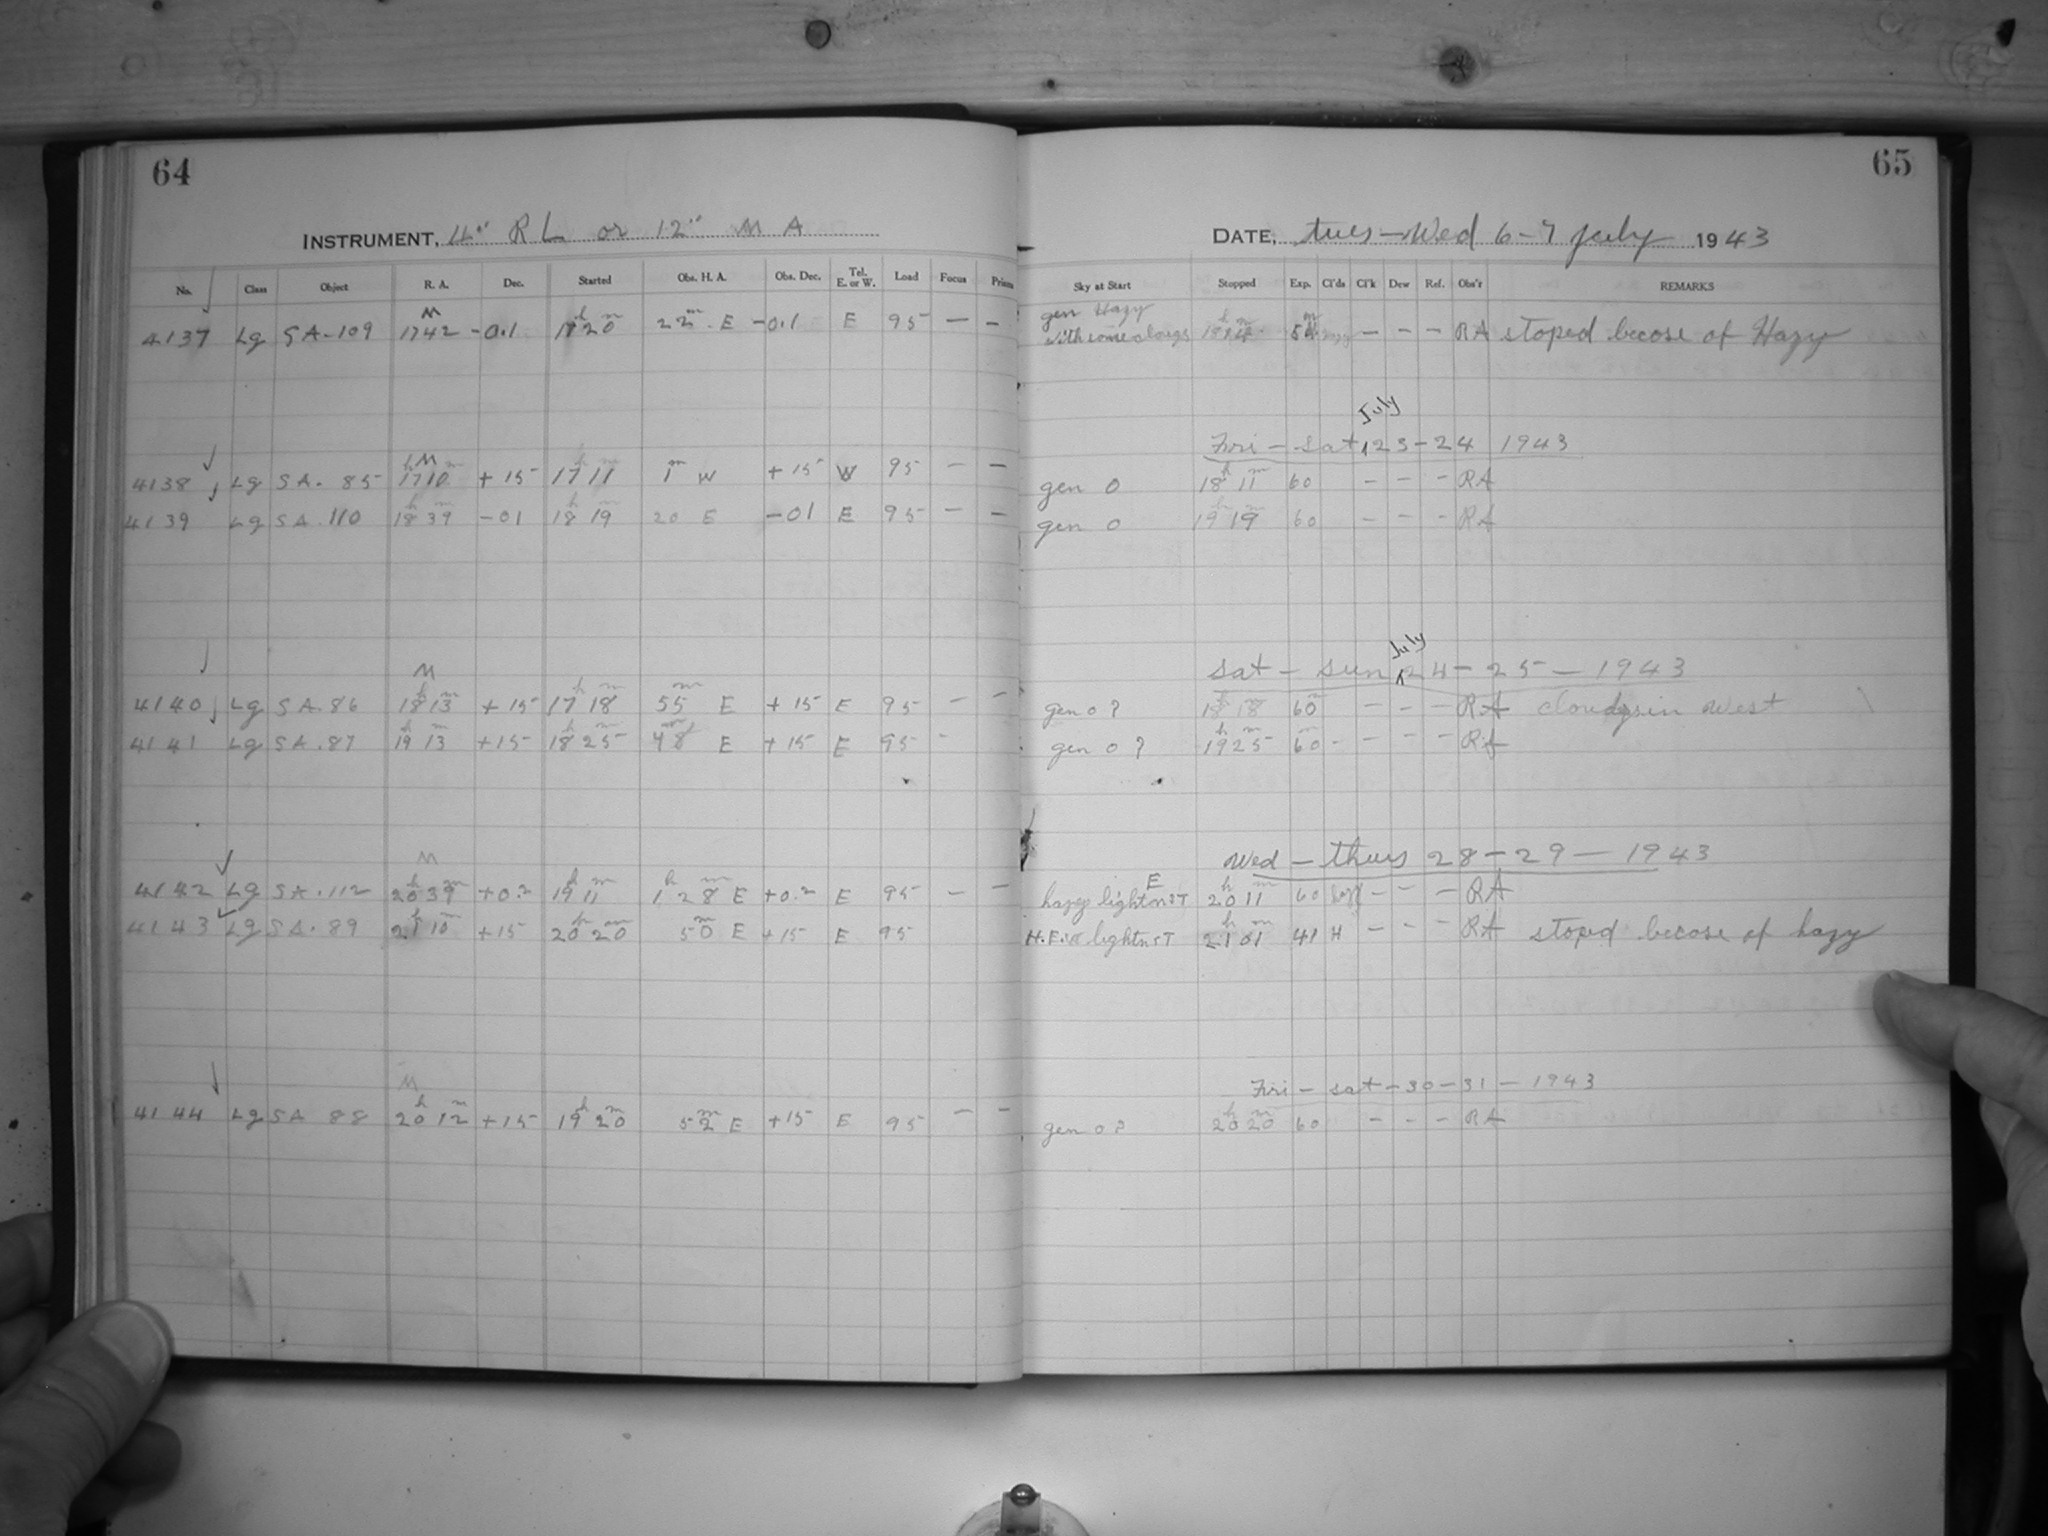 64
INSTRUMENT, 4" R L or 12" M A
No. Class Object R. A. Dec. Started Obs. H. A. Obs. Dec. Tel. E. or W. Load Focus Prisms
M
4137 Lg SA-109 1742 -0.1 18h20m 22m E -0.1 E 95 — —
M
4138 Lg SA. 85 17h10m +15 17h11m 1m W +15 W 95 — —
4139 Lg SA.110 18h39m -01 18h19m 20 E -01 E 95 — —
M
4140 Lg SA.86 18h13m +15 17h18m 55m E +15 E 95 - -
4141 Lg SA.87 19h13m +15 18h25m 48m E +15 E 95 -
M
4142 Lg SA.112 20h39m +0.2 19h11m 1h28m E +0.2 E 95 - -
4143 Lg SA.89 21h10m +15 20h20m 50m E +15 E 95
M
4144 Lg SA 88 20h12m +15 19h20m 52m E +15 E 95 — —
65
DATE, tues - Wed 6-7 july 1943
Sky at Start Stopped Exp. Cl'ds Cl'k Dew Ref. Obs'r REMARKS
gen Hazy
with some — — — RA stoped becose of Hazy
July
Fri - sat 23-24 1943
gen 0 18h11m 60 - - - RA
gen 0 19h19m 60 - - - RA
July
sat - sun 24-25 - 1943
gen 0? 18h18m 60m - - - RA in west
gen 0? 19h25m 60m - - - - RA
Wed - thurs 28-29-1943
E
hazy 20h11m 60 - - - RA
21h01m 41 H - - - RA stoped becose of hazy
Fri - sat - 30-31 - 1943
gen 0? 20h20m 60 - - - RA